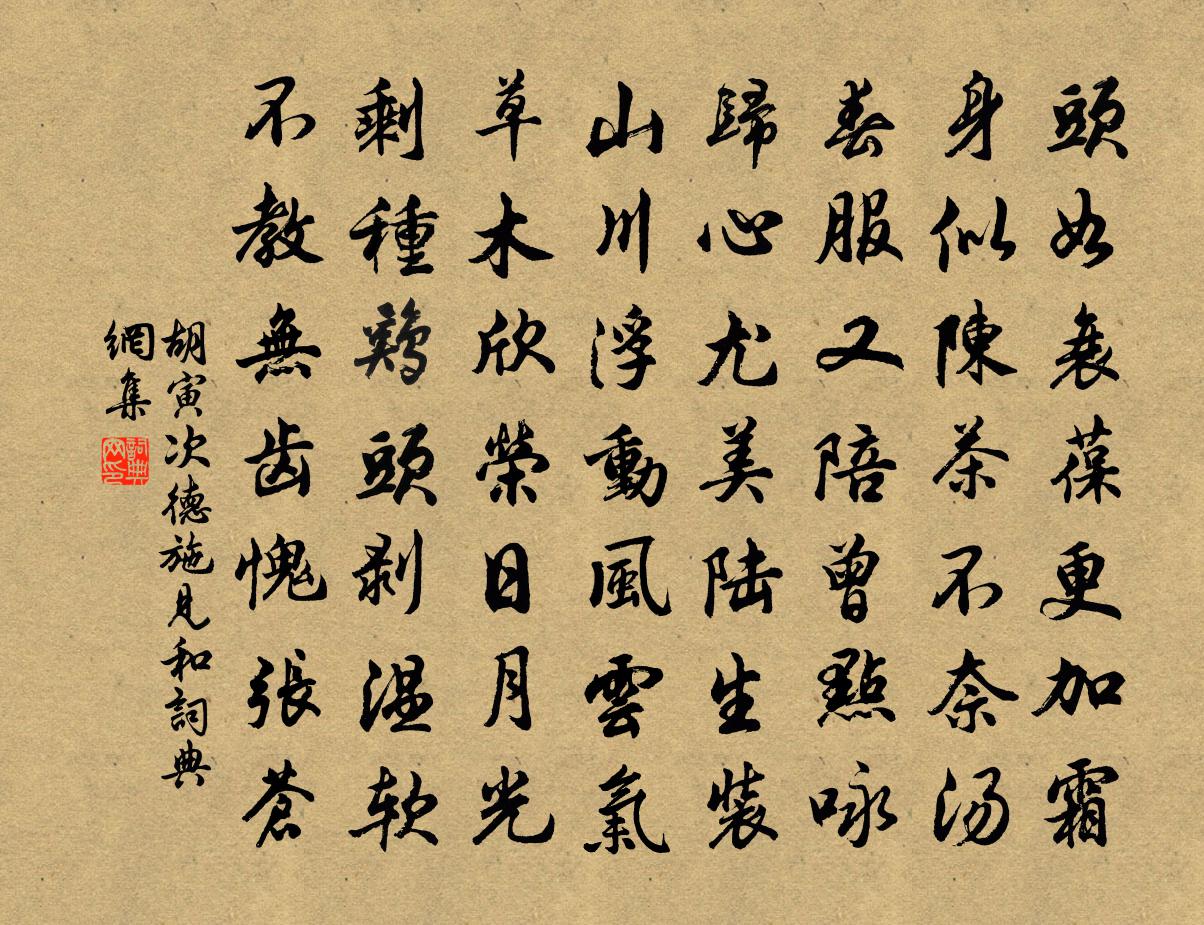 頭如衰葆更加霜
身似陳茶不奈湯
春服又陪曾點咏
歸心尤美陆生裝
山川浮動風雲氣
草木欣榮日月光
剩種鷄頭剥温软
不教無齿愧張蒼
胡寅次德施見和詞典
網集
詞典网印